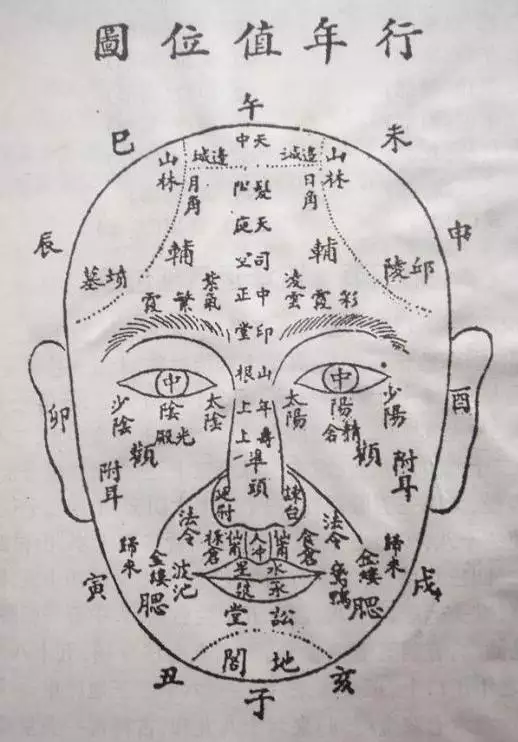 行年值位圖
午
未
巳
申
辰
酉
卯
戌
寅
亥
丑
子
天中
天庭
中正
印堂
山根
年上
壽上
準頭
邊城
邊城
山林
山林
日角
月角
輔
輔
邱陵
墓
彩霞
繁霞
凌雲
紫氣
太陽
太陰
中
中
陽
陰
少陽
少陰
精舍
光殿
顴
顴
附耳
附耳
法令
法令
食倉
歸來
歸來
金縷
金縷
波池
腮
腮
水星
訟堂
地閣